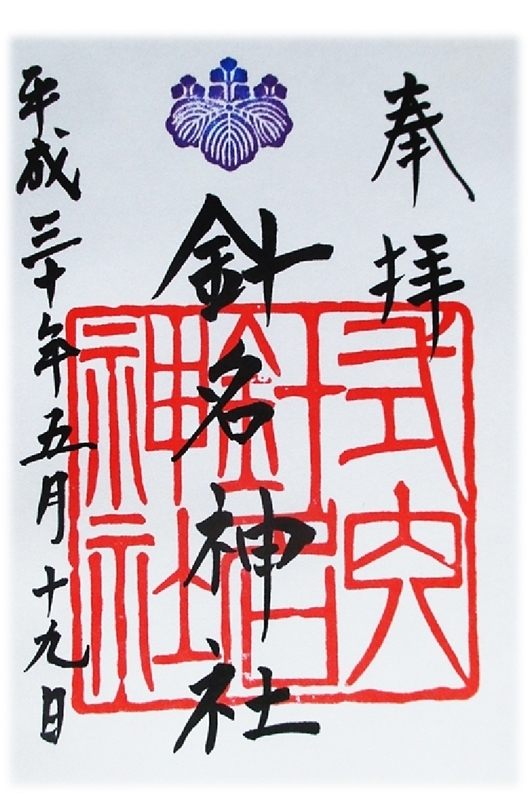 奉拝
式内
針名
神社
針名神社
平成三十年五月十九日